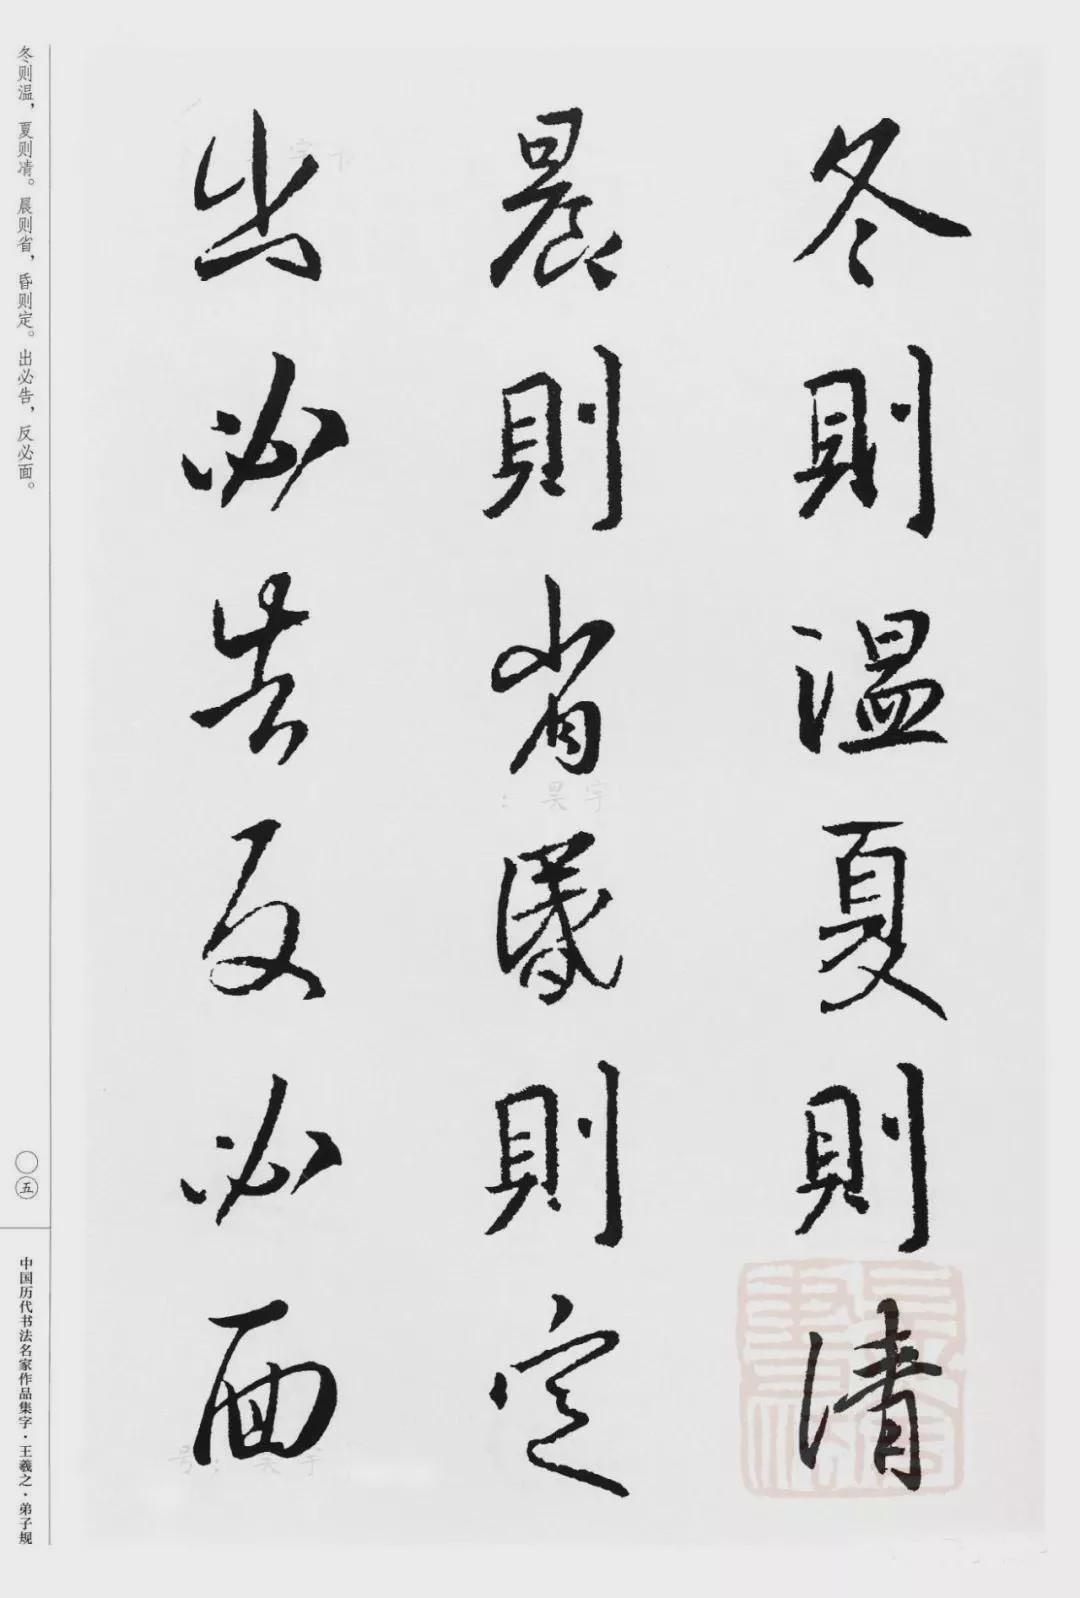 冬則温夏則清
晨則省昬則定
出必告反必面
冬则温，夏则凊。晨则省，昏则定。出必告，反必面。
〇五
中国历代书法名家作品集字·王羲之·弟子规